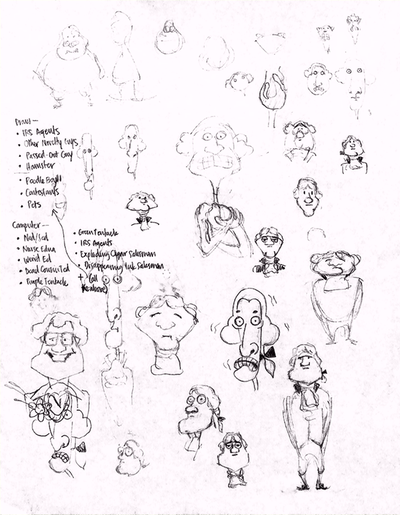 Draw —
• IRS Agents
• Other Novelty Guys
• Passed-Out Guy
• Hamster
• Poodle Bowl
• Contestants
• Pets
Computer —
• Ned/Jed
• Nurse Edna
• Weird Ed
• Dead Cousin Ted
• Purple Tentacle
• Green Tentacle
• IRS Agents
• Exploding Cigar Salesman
• Disappearing Ink Salesman
+ (all
the above)